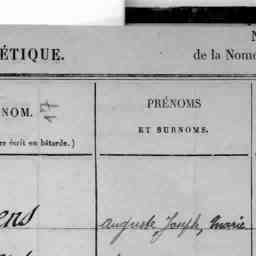 ÉTIQUE.
N
de la Nome
NOM. 17
re écrit en bâtarde.)
PRÉNOMS
ET SURNOMS.
ens
Auguste, Joseph, Marie